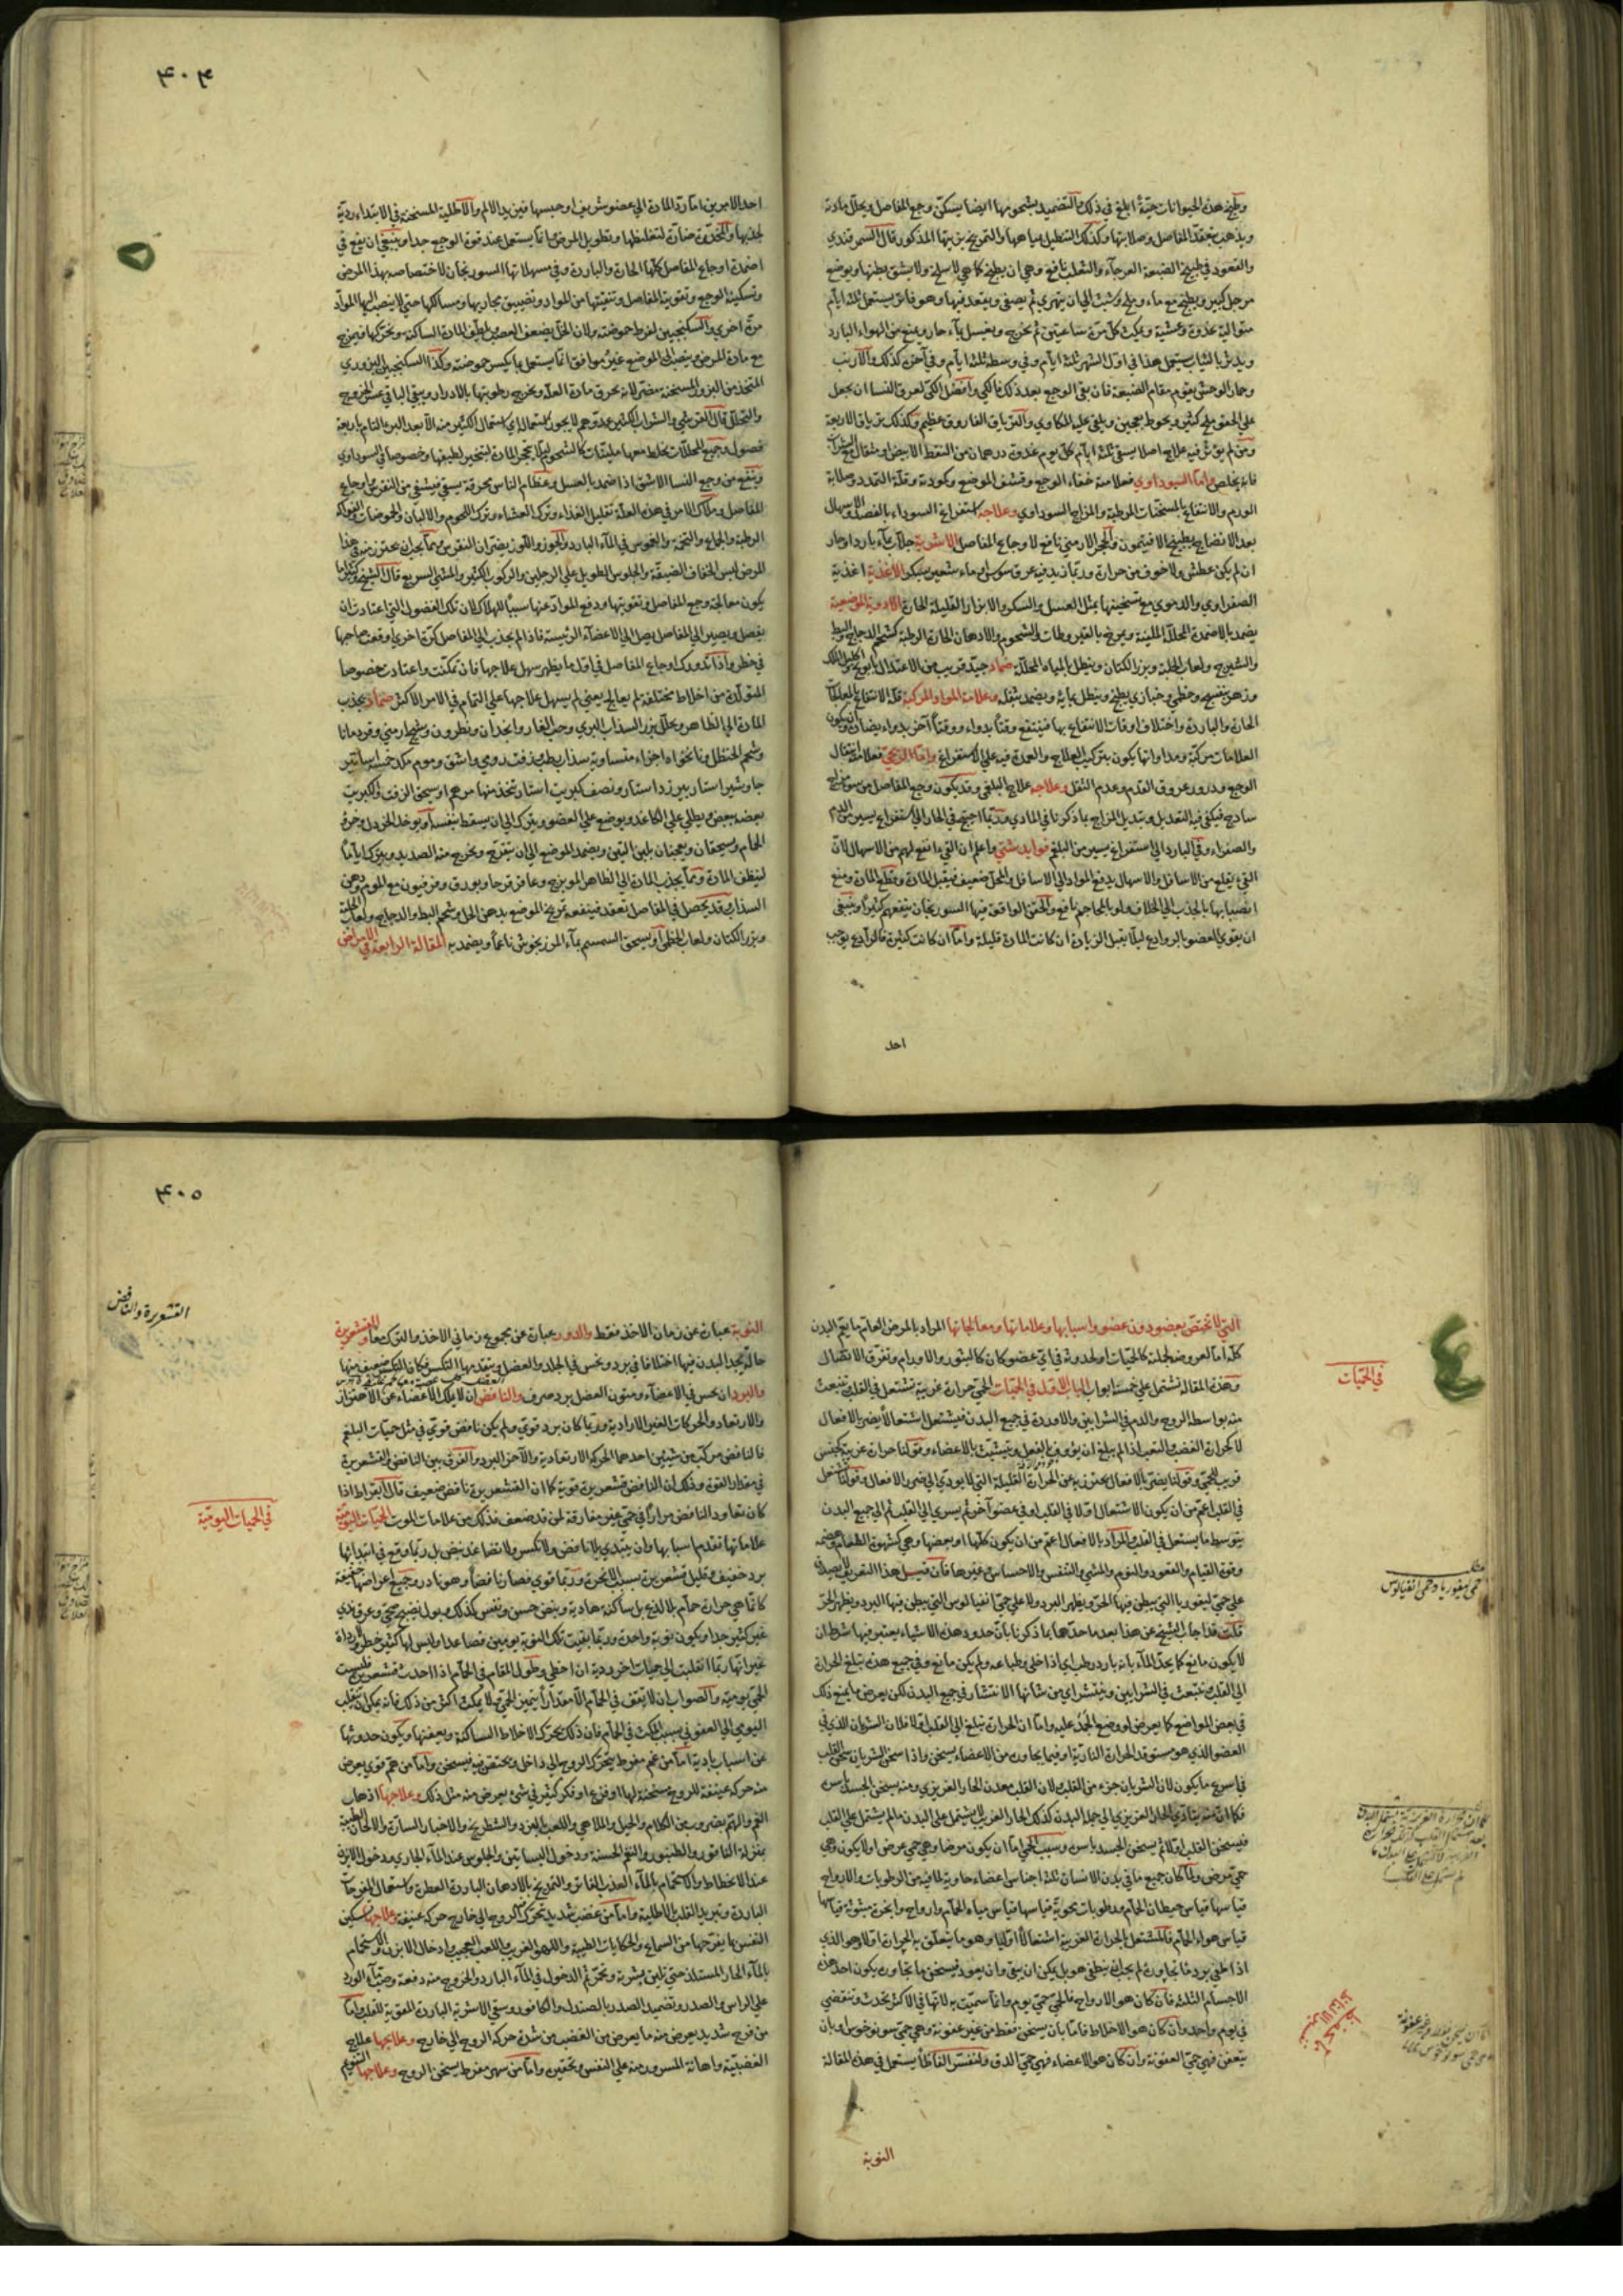 وطبيخ هذه الحيوانات حية أبلغ في ذلك والتضميد بشحومها ايضا يسكن وجع المفاصل ويحلل مادته
ويذهب بتعقد المفاصل وصلابتها وكذلك التنطيل بمياهها والتمريخ بزيتها المذكور قال السمرقندي
والقعود في طبيخ الضبعة العرجاء والثعلب نافع وهي ان يطبخ كما هي لا يسلخ ولا يشق بطنها ويوضع
مرجل كبير ويطبخ مع ماء وملح وشبث الى ان يتهرى ثم يصفى ويقعد فيها وهو فاتر يستعمل ثلثة ايام
متوالية غدوة وعشية ويمكث كل مرة ساعتين ثم يخرج ويغسل بماء حار ويمنع من الهواء البارد
ويدثر بالثياب يستعمل هذا في اول الشهر ثلثة ايام وفي وسطه ثلثة ايام وفي آخره كذلك والارنب
وحمار الوحش يقوم مقام الضبعة فان بقي الوجع بعد ذلك فالكي وافضل الكي لعرق النسا ان يجعل
على الحق ملح كثير ويحوط بعجين ويلقى عليه المكاوي والترياق الفاروق عظيم وكذلك ترياق الاربعة
ومن لم يؤثر فيه علاج اصلا يسقى ثلثة ايام كل يوم غدوة درهمان من النفط الابيض او مثقال مع الشراب
فانه يخلص واما السوداوي فعلامته خفاء الوجع وقشف الموضع وكمودته وقلة التمدد وصلابة
الورم والانتفاع بالمسخنات المرطبة والمزاج السوداوي وعلاجه استفراغ السوداء بالفصد والاسهال
بعد الانضاج بطبيخ الافتيمون والحجر الارمني نافع لاوجاع المفاصل الاشربة جلاب بماء بارد او حار
ان لم يكن عطش ولا خوف من حرارة وربما زيد فيه عرق سوس او ماء شعير بسكر الاغذية اغذية
الصفراوي والدموي مع تسخينها بمثل العسل والسكر والابزار القليلة الحارة الادوية الموضعية
يضمد بالاضمدة المحللة الملينة ويمرخ بالقيروطيات والشحوم والادهان الحارة الرطبة كشحم الدجاج والبط
والشيرج ولعاب الحلبة وبزر الكتان وينطل بالمياه المحللة ضماد جيد قريب من الاعتدال بابونج اكليل الملك
وزهر بنفسج وخطمي وخبازي يطبخ وينطل بمائه ويضمد بثفله وعلامة المواد المركبة قلة الانتفاع بالمعالجات
الحارة والباردة واختلاف اوقات الانتفاع بها فينتفع وقتاً بدواء ووقتاً آخر بدواء يضاده ويكون
العلامات مركبة ومداواتها يكون بتركيب العلاج والعمدة فيه على الاستفراغ واما الريحي فعلامته انتقال
الوجع ودرور عروق القدم وعدم الثقل وعلاجه علاج البلغمي وقد يكون وجع المفاصل من سوء مزاج
ساذج فيكفي فيه التعديل وتبديل المزاج بما ذكرنا في المادي وربما احتيج في الحار الى استفراغ يسير من الدم
والصفراء وفي البارد الى استفراغ يسير من البلغم فوايد شتى واعلم ان القيء انفع لهم من الاسهال لان
القيء يقلع من الاسافل والاسهال يدفع المواد الى الاسافل والمحل ضعيف فيقبل المادة وقطع المادة ومنع
انصبابها بالجذب الى الخلاف ولو بالمحاجم نافع والحقن الواقعة فيها السورنجان ينفعهم كثيراً وينبغي
ان يقوى العضو بالروادع ليلا يقبل الزيادة ان كانت المادة قليلة واما ان كانت كثيرة فالرادع يوجب
احد
٤٠٤
احد الامرين اما رد المادة الى عضو شريف او حبسها فيزيد الالم والاطلية المسخنة في الابتداء ردية
لجذبها والمخدرة ضارة لتغليظها وتطويل المرض وانما يستعمل عند قوة الوجع جدا وينبغي ان يقع في
اضمدة اوجاع المفاصل كلها الحارة والباردة وفي مسهلاتها السورنجان لاختصاصه بهذا المرض
وتسكينه الوجع وتقوية المفاصل وتنقيتها من المواد وتضييق مجاريها ومسالكها حتى لا ينصب اليها المواد
مرة اخرى والسكنجبين لفرط حموضته ولان الخل يضعف العصب ويلطف المادة الساكنة ويحركها فيمزج
مع مادة المرض وينصب الى الموضع غير موافق انما يستعمل ما يكسر حموضته وكذا السكنجبين البزوري
المتخذ من البزور المسخنة مضر لانه يحرق مادة العلة ويخرج رطوبتها بالادرار ويبقى الباقي عسر الخروج
والتحلل قال القرشي والشراب الكثير عدو لهم لا يجوز استعماله اي استعمال الكثير منه الا بعد البرء التام باربعة
فصول وجميع المحللات يخلط معها ملينات كالشحوم ليلا يتحجر المادة لتبخير لطيفها وخصوصا في السوداوي
وينفع من وجع النسا الاشق اذا ضمد بالعسل وعظام الناس محرقة يسقى فيشفي من النقرس واوجاع
المفاصل وملاك الامر في هذه العلة تقليل الغذاء وترك العشاء وترك اللحوم والالبان والحموضات والفواكه
الرطبة والجماع والتخمة والغوص في الماء البارد والجوز واللوز يضران النقرس ومما يجب ان يحترز منه في هذا
المرض لبس الخفاف الضيقة والجلوس الطويل على الرجلين والركوب الكثير والمشي السريع قال الشيخ وكثيرا ما
يكون معالجة وجع المفاصل وتقويتها ودفع المواد عنها سبباً للهلاك لان تلك الفضول التي اعتادت ان
ينفصل ويصير الى المفاصل يصل الى الاعضاء الرئيسة فاذا لم يجذب الى المفاصل كرة اخرى اوقعت صاحبها
في خطر واذا تدورك اوجاع المفاصل في اول ما يظهر سهل علاجها فان تمكنت واعتادت خصوصا
المتولدة من اخلاط مختلفة لم يعالج يعني لم يسهل علاجها على التمام في الامر الاكثر ضماد يجذب
المادة الى الظاهر ويحلل بزر السذاب البري وحب الغار وانجدان ونطرون وشيح ارمني وقردمانا
وشحم الحنظل ونانخواه اجزاء متساوية سذاب رطب زفت رومي واشق وموم مكد خمسة اساتير
جاوشير استار بيرزد استار ونصف كبريت استار يتخذ منها مرهم او يسحق الزفت والكبريت
بعضه ببعض ويطلى على الكاغد ويوضع على العضو ويترك الى ان يسقط بنفسه او يوخذ الخردل وخرؤ
الحمام ويسحقان ويعجنان بلبن التين ويضمد الموضع الى ان يتقرح ويخرج منه الصديد ويترك اياماً
لينظف المادة ومما يجذب المادة الى الظاهر الميويزج وعاقرقرحا وبورق وفرفيون مع الموم ودهن
السذاب وقد يحصل في المفاصل تعقد فينفعه تمريخ الموضع بدهن الخل وشحم البط والدجاج ولعاب الحلبة
وبزر الكتان ولعاب الخطمي او يسحق السمسم بماء المرزنجوش ناعماً ويضمد به المقالة الرابعة في الامراض
التي لا تختص بعضو دون عضو واسبابها وعلاماتها ومعالجاتها المراد بالمرض العام ما يعم البدن
كله اما لعروضه لجملته كالحميات او لحدوثه في اي عضو كان كالبثور والاورام وتفرق الاتصال
وهذه المقالة تشتمل على خمسة ابواب الباب الاول في الحميات الحمى حرارة غريبة تشتعل في القلب وتنبعث
منه بواسطة الروح والدم في الشرايين والاوردة في جميع البدن فيشتعل اشتعالاً يضر بالافعال
لا كحرارة الغضب والتعب اذا لم يبلغ ان يؤوف بالفعل ويتشبث بالاعضاء وقولنا حرارة غريبة كجنس
قريب للحمى وقولنا يضر بالافعال يحترز به عن الحرارة القليلة التي لا يودي الى ضرر الافعال وقولنا تشتعل
في القلب اعم من ان يكون الاشتعال اولا في القلب او في عضو آخر ثم يسري الى القلب ثم الى جميع البدن
بتوسط ما يستعمل في القلب والمراد بالافعال اعم من ان يكون كلها او بعضها وهي كشهوة الطعام وهضمه
وقوة القيام والقعود والنوم والمشي والتنفس والاحساس وغيرها فان قيل هذا التعريف لا يصدق
على حمى ليفوريا التي يبطن فيها الحر ويظهر البرد ولا على حمى انفيالوس التي يبطن فيها البرد ويظهر الحر
قلت قد اجاب الشيخ عن هذا بعد ما حدها بما ذكرنا بان حدود هذه الاشياء يعتبر فيها شرط ان
لا يكون مانع كما يحد الماء بانه بارد رطب اي اذا خلي وطباعه ولم يكن مانع وفي جميع هذه تبلغ الحرارة
الى القلب وتنبعث في الشرايين وينتشر اي من شانها الانتشار في جميع البدن لكن يعرض ما يمنع ذلك
في بعض المواضع كما يعرض لو وضع الجمد عليه واما ان الحرارة تبلغ الى القلب اولا فلان الشريان الذي في
العضو الذي هو مستوقد الحرارة النارية او فيما يجاوره من الاعضاء يسخن واذا سخن الشريان سخن القلب
في اسرع ما يكون لان الشريان جزء من القلب ولان القلب معدن الحار الغريزي ومنه يسخن الجسد باسره
فكما انه منه يتادى الحار الغريزي الى جملة البدن كذلك الحار الغريب لا يشتمل على البدن ما لم يشتمل على القلب
فيسخن القلب اولا ثم يسخن الجسد باسره وسبب الحمى اما ان يكون مرضا وهي حمى عرض او لا يكون وهي
حمى مرض ولما كان جميع ما في بدن الانسان ثلثة اجناس اعضاء حاوية لما فيه من الرطوبات والارواح
قياسها قياس حيطان الحمام ورطوبات محوية قياسها قياس مياه الحمام وارواح وابخرة مبثوثة قياسها
قياس هواء الحمام فالمشتعل بالحرارة الغريبة اشتعالاً اوليا وهو ما يتعلق به الحرارة اولا وهو الذي
اذا طفي برد ما يجاوره لم يجب ان ينطفي هو بل يمكن ان يبقى وان يعود فيسخن ما يجاوره يكون احد هذه
الاجسام الثلثة فان كان هو الارواح فالحمى حمى يوم وانما سميت به لانها في الاكثر تحدث وتنقضي
في يوم واحد وان كان هو الاخلاط فاما بان يسخن فقط من غير عفونة وهي حمى سونوخوس او بان
يتعفن فهي حمى العفونة وان كان هو الاعضاء فهي حمى الدق ولنفسر الفاظاً يستعمل في هذه المقالة
النوبة
في الحميات
حمى ليفوريا وحمى انفيالوس
٤٠٥
القشعريرة والنافض
النوبة عبارة عن زمان الاخذ فقط والدور عبارة عن مجموع زماني الاخذ والترك معا والقشعريرة
حالة يجد البدن فيها اختلافا في برد ونخس في الجلد والعضل ويتقدمها التكسر وكان التكسر ضعيف منها
والبرد ان يحس في الاعضاء ومتون العضل برد صرف والنافض ان لا يملك الاعضاء عن الاهتزاز
والارتعاد والحركات الغير الارادية وربما كان برد قوي ولم يكن نافض قوي في مثل حميات البلغم
فالنافض مركب من شيئين احدهما الحركة الارتعادية والآخر البرد والفرق بين النافض والقشعريرة
في مقدار القوة وذلك ان النافض قشعريرة قوية كما ان القشعريرة نافض ضعيف قال ابقراط اذا
كان تعاود النافض مراراً في حمى غير مفارقة لمن قد ضعف فذلك من علامات الموت الحميات اليومية
علاماتها تقدم اسبابها وان يبتدي بلا نافض ولا تكسر ولا انضغاط نبض بل ربما وقع في ابتدائها
برد خفيف وقليل قشعريرة بسبب الابخرة وربما قوي فصار نافضاً وهو نادر وجميع اعراضها خفيفة
كانما هي حرارة حمام بلا لذع بل ساكنة هادية ونبض حسن ونفس كذلك وبول نضيج صحي وعرق ندي
غير كثير جدا ويكون نوبة واحدة وربما بقيت تلك النوبة يومين فصاعدا وليس لها كثير خطر ورداة
غير انها ربما انقلبت الى حميات اخر ردية ان اخطي وطول المقام في الحمام اذا احدث قشعريرة فليست
الحمى يومية والصواب ان لا يتف في الحمام الا مقداراً يتميز الحمى ولا يمكث اكثر من ذلك فانه يمكن ان ينقلب
اليومي الى العفوني بسبب المكث في الحمام فان ذلك يحرك الاخلاط الساكنة ويعفنها ويكون حدوثها
عن اسباب بادية اما من غم مفرط يتحرك الروح الى داخل ويختقن فيه فيسخن واما من هم قوي يعرض
منه حركة عنيفة للروح مسخنة لها او فزع او فكر كثير في شيء يعرض منه مثل ذلك وعلاجها اذهاب
الغم والهم بضروب من الكلام والحيل والملاهي واللعب بالنرد والشطرنج والاخبار السارة والالحان الطيبة
بمنزلة الناقور والطنبور والنغم الحسنة ودخول البساتين والجلوس عند الماء الجاري ودخول الابزن
عند الانحطاط والاستحمام بالماء العذب الفاتر والتمريخ بالادهان الباردة العطرة واستعمال المفرحات
الباردة وتبريد القلب بالاطلية واما من غضب شديد تحرك الروح الى خارج حركة عنيفة وعلاجها تسكين
النفس بما يفرحها من السماع والحكايات الطيبة واللهو الغريب واللعب العجيب وادخال الابزن والاستحمام
بالماء الحار المستلذ حتى تلين بشرته وتحمر ثم الدخول في الماء البارد والخروج منه دفعة وصب ماء الورد
على الراس والصدر وتضميد الصدر بالصندل والكافور وسقي الاشربة الباردة المقوية للقلب واما
من فرح شديد يعرض منه ما يعرض من الغضب من شدة حركة الروح الى خارج وعلاجها علاج
الغضبية واهانة المسرور منه على النفس وتحقيره واما من سهر مفرط يسخن الروح وعلاجها التنويم
في الحميات اليومية